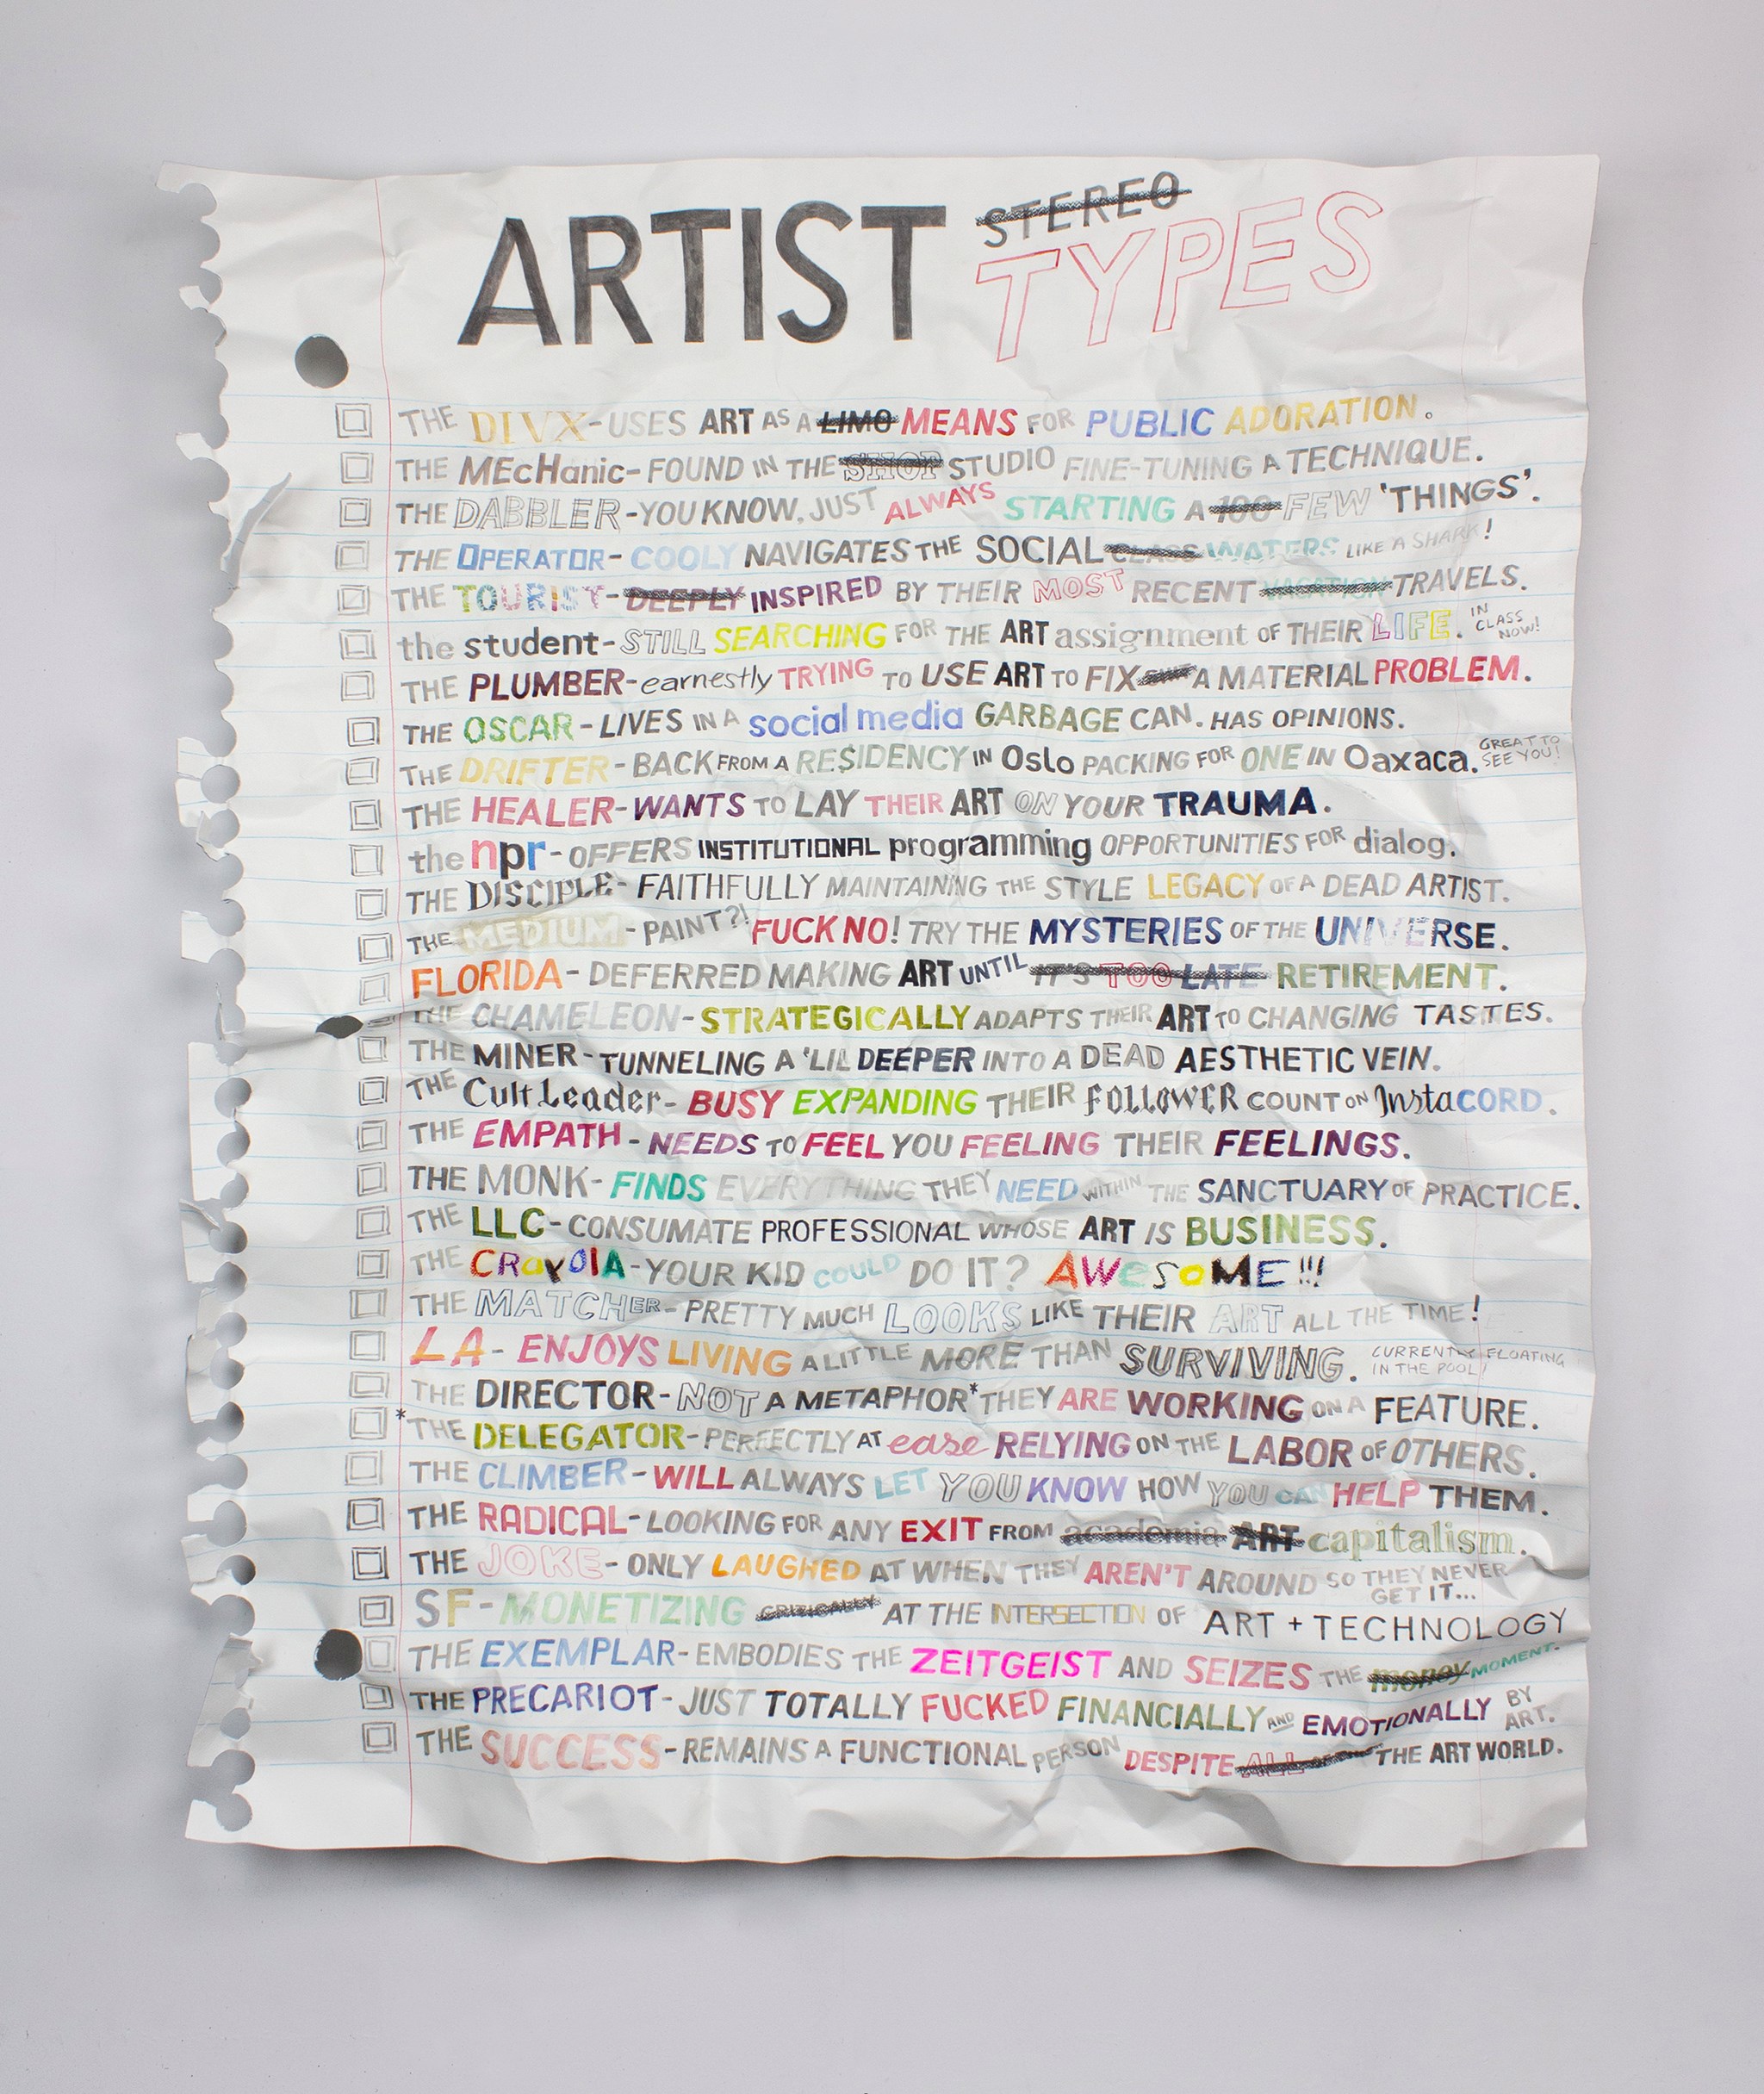 ARTIST STEREO TYPES
THE DIVX - USES ART AS A LIMO MEANS FOR PUBLIC ADORATION.
THE MEcHanic - FOUND IN THE SHOP STUDIO FINE-TUNING A TECHNIQUE.
THE DABBLER - YOU KNOW, JUST ALWAYS STARTING A 100 FEW 'THINGS'.
THE OPERATOR - COOLY NAVIGATES THE SOCIAL CLASS WATERS LIKE A SHARK!
THE TOURIST - DEEPLY INSPIRED BY THEIR MOST RECENT VACATION TRAVELS.
the student - STILL SEARCHING FOR THE ART assignment OF THEIR LIFE. IN CLASS NOW!
THE PLUMBER - earnestly TRYING TO USE ART TO FIX A MATERIAL PROBLEM.
THE OSCAR - LIVES IN A social media GARBAGE CAN. HAS OPINIONS.
THE DRIFTER - BACK FROM A RE$IDENCY IN Oslo PACKING FOR ONE IN Oaxaca. GREAT TO SEE YOU!
THE HEALER - WANTS TO LAY THEIR ART ON YOUR TRAUMA.
the npr - OFFERS INSTITUTIONAL programming OPPORTUNITIES FOR dialog.
THE DISCIPLE - FAITHFULLY MAINTAINING THE STYLE LEGACY OF A DEAD ARTIST.
THE MEDIUM - PAINT?! FUCK NO! TRY THE MYSTERIES OF THE UNIVERSE.
FLORIDA - DEFERRED MAKING ART UNTIL IT'S TOO LATE RETIREMENT.
THE CHAMELEON - STRATEGICALLY ADAPTS THEIR ART TO CHANGING TASTES.
THE MINER - TUNNELING A 'LIL DEEPER INTO A DEAD AESTHETIC VEIN.
THE Cult Leader - BUSY EXPANDING THEIR FOLLOWER COUNT ON InstaCORD.
THE EMPATH - NEEDS TO FEEL YOU FEELING THEIR FEELINGS.
THE MONK - FINDS EVERYTHING THEY NEED WITHIN THE SANCTUARY OF PRACTICE.
THE LLC - CONSUMATE PROFESSIONAL WHOSE ART IS BUSINESS.
THE CRayOlA - YOUR KID COULD DO IT? AWeSoME!!!
THE MATCHER - PRETTY MUCH LOOKS LIKE THEIR ART ALL THE TIME!
LA - ENJOYS LIVING A LITTLE MORE THAN SURVIVING. CURRENTLY FLOATING IN THE POOL!
THE DIRECTOR - NOT A METAPHOR* THEY ARE WORKING ON A FEATURE.
*THE DELEGATOR - PERFECTLY AT ease RELYING ON THE LABOR OF OTHERS.
THE CLIMBER - WILL ALWAYS LET YOU KNOW HOW YOU CAN HELP THEM.
THE RADICAL - LOOKING FOR ANY EXIT FROM academia ART capitalism.
THE JOKE - ONLY LAUGHED AT WHEN THEY AREN'T AROUND SO THEY NEVER GET IT...
SF - MONETIZING CRITICALITY AT THE INTERSECTION OF ART + TECHNOLOGY
THE EXEMPLAR - EMBODIES THE ZEITGEIST AND SEIZES THE money MOMENT.
THE PRECARIOT - JUST TOTALLY FUCKED FINANCIALLY AND EMOTIONALLY BY ART.
THE SUCCESS - REMAINS A FUNCTIONAL PERSON DESPITE ALL THE ART WORLD.